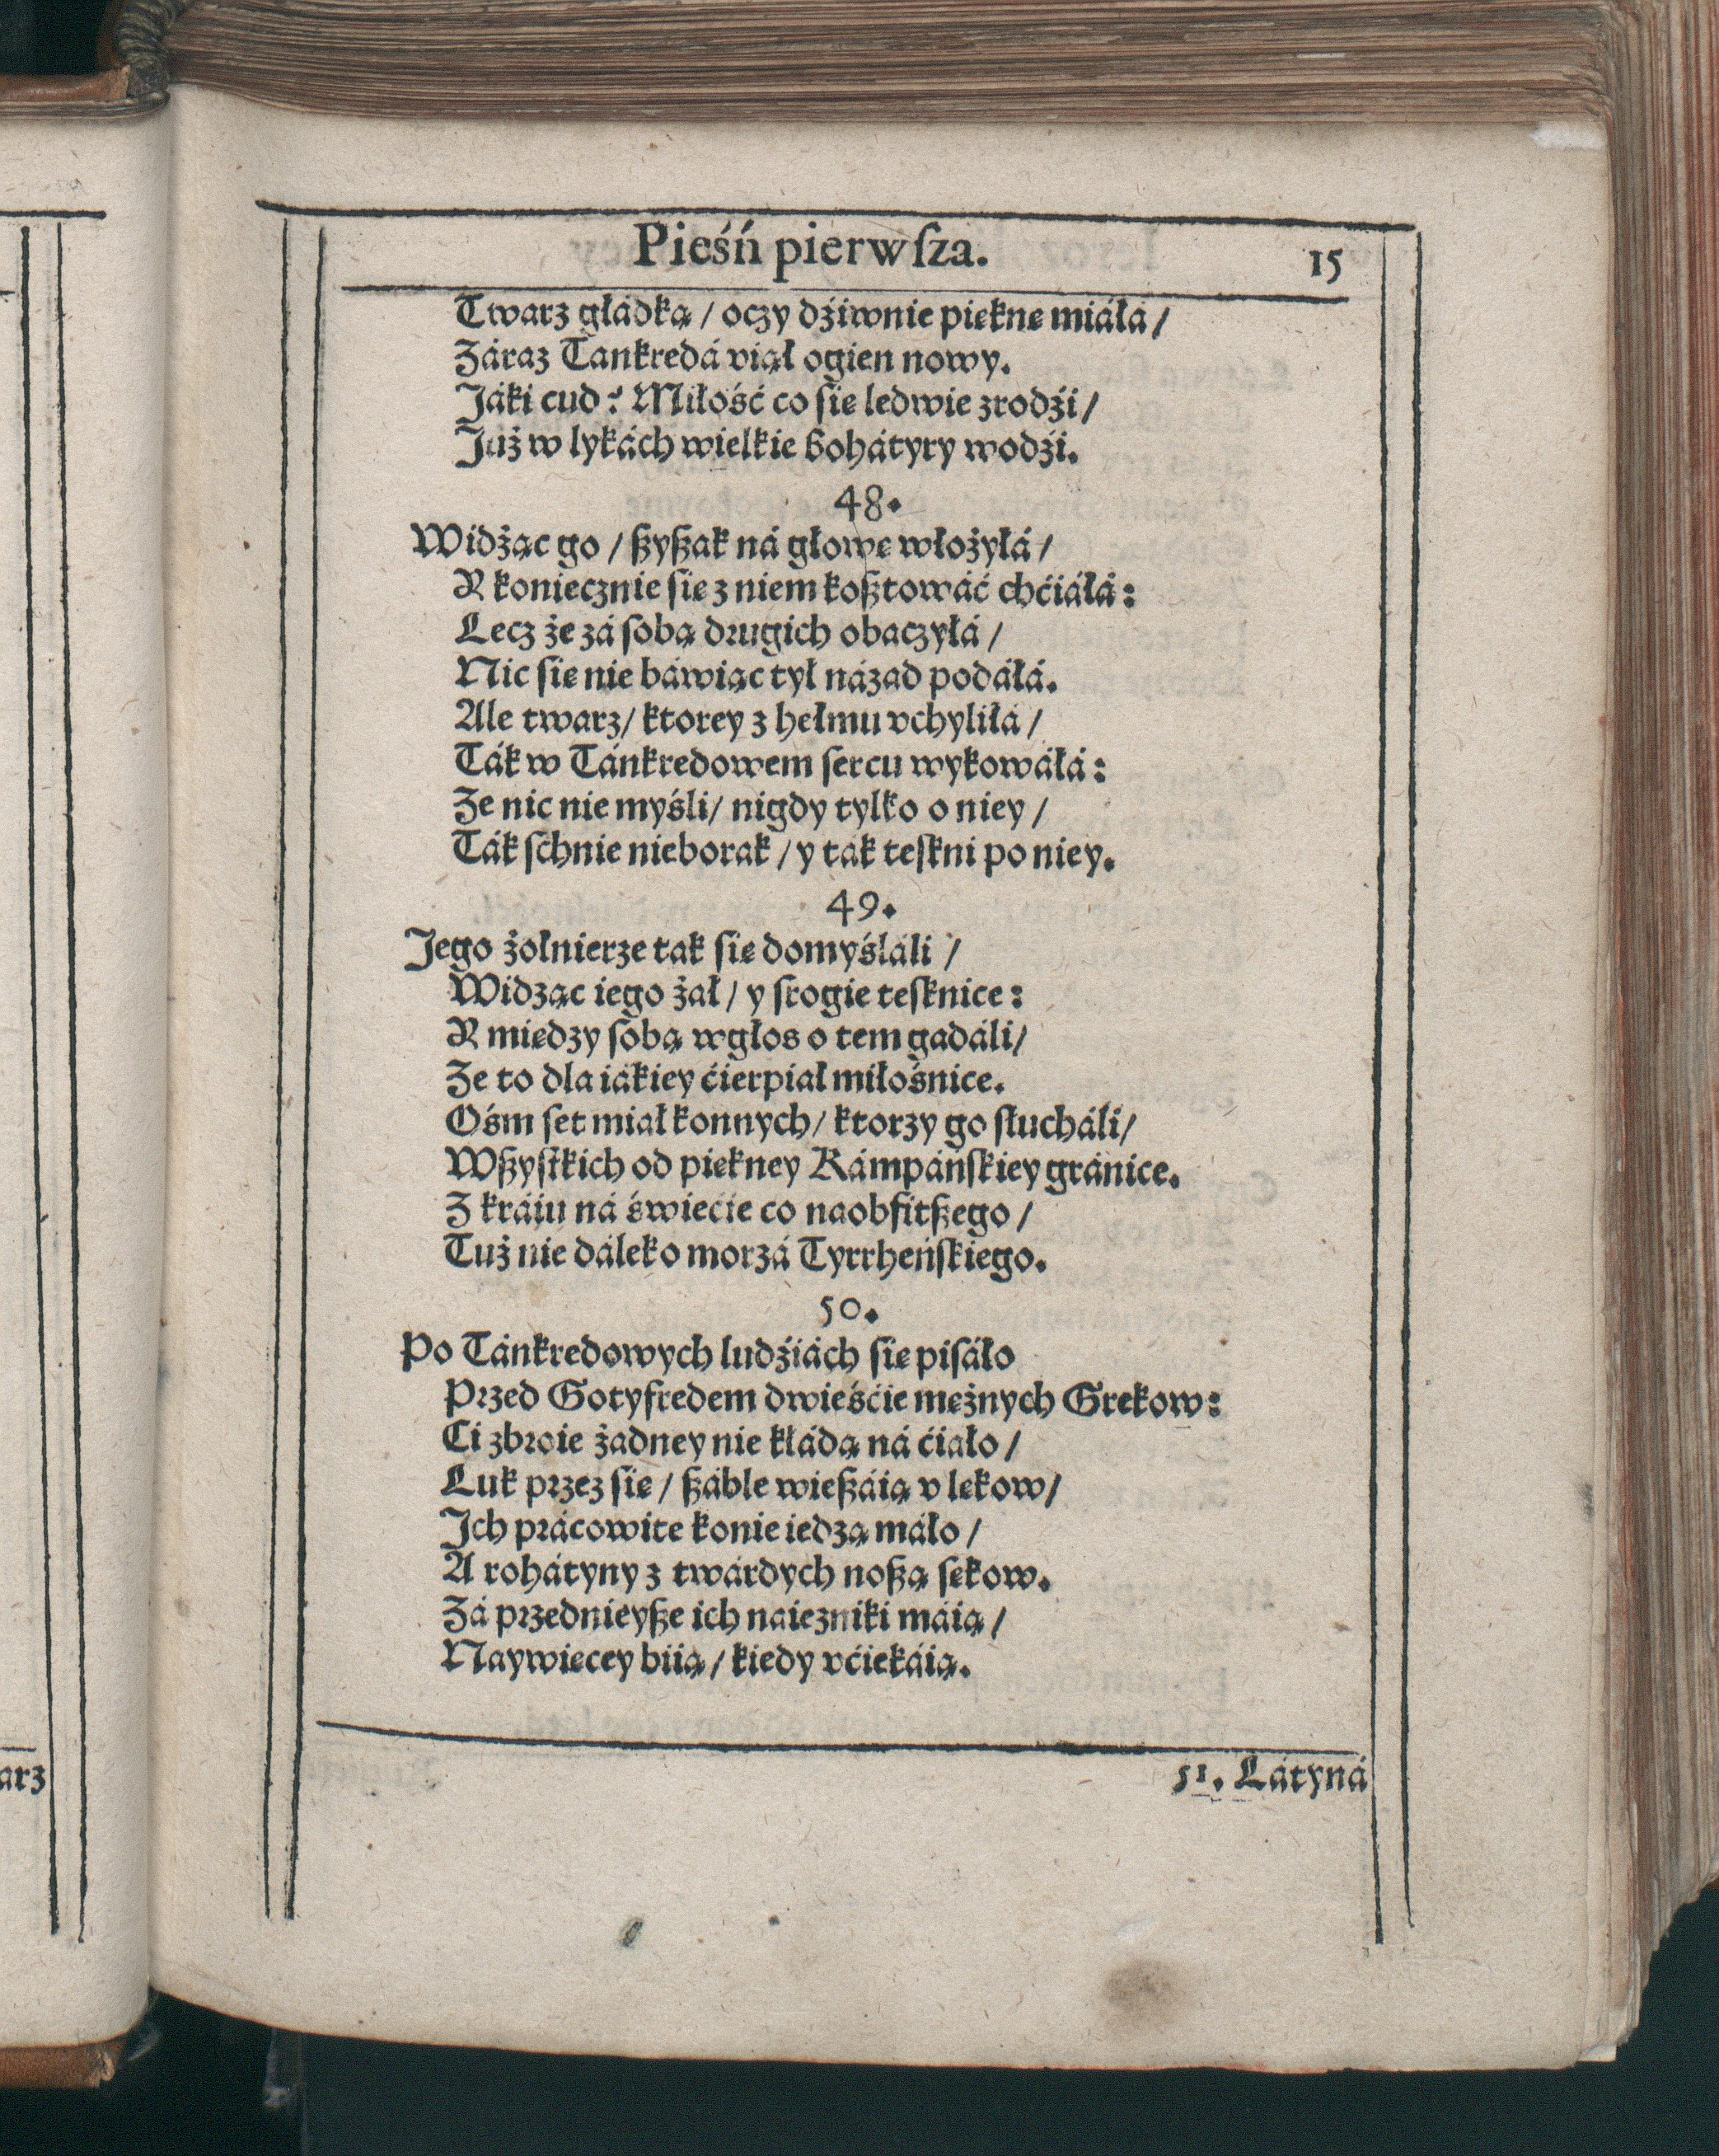 Pieśń pierwſza. 15
Twarz głádką / oczy dźiwnie piękne miáłá /
Záraz Tankredá viął ogien nowy.
Jáki cud? Miłość co się ledwie zrodźi /
Już w łykách wielkie bohátyry wodźi.
48.
Widżąc go / ßyßak ná głowę włożyłá /
Y koniecznie się z niem koßtowáć chćiáłá:
Lecz że zá sobą drugich obaczyłá /
Nic się nie báwiąc tył názad podáłá.
Ale twarz / ktorey z hełmu vchyliłá /
Ták w Tánkredowem sercu wykowáłá:
Ze nic nie myśli / nigdy tylko o niey /
Ták schnie nieborak / y tak teskni po niey.
49.
Jego żołnierze tak się domyśláli /
Widząc iego żal / y srogie tesknice:
Y miedzy sobą w głos o tem gadáli /
Ze to dla iákiey ćierpiał miłośnice.
Ośm set miał konnych / ktorzy go słucháli /
Wßystkich od piękney Kámpáńskiey gránice.
Z kráiu ná świećie co naobfitßego /
Tuż nie dáleko morzá Tyrrheńskiego.
50.
Po Tánkredowych ludźiách się pisáło
Przed Gotyfredem dwieśćie mężnych Grekow:
Ci zbroie żadney nie kłádą ná ćiało /
Łuk przez się / ßáble wießáią v łękow /
Ich prácowite konie iedzą máło /
A rohátyny z twárdych noßą sękow.
Zá przednieyße ich naiezniki máią /
Naywięcey biią / kiedy vćiekáią.
51. Látyná
arz